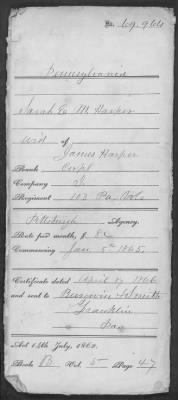 No. 69,966
Pennsylvania
Sarah E. M. Harper
Wid of
James Harper
Rank, Corpl
Company
Regiment 103 Pa. Vols
Pittsburgh Agency.
Rate per month, $ 8
Commencing Jan 5th 1865,
Certificate dated April 1866
and sent to
Franklin
Act 14th July, 1862.
Book B Vol. 5 Page 47